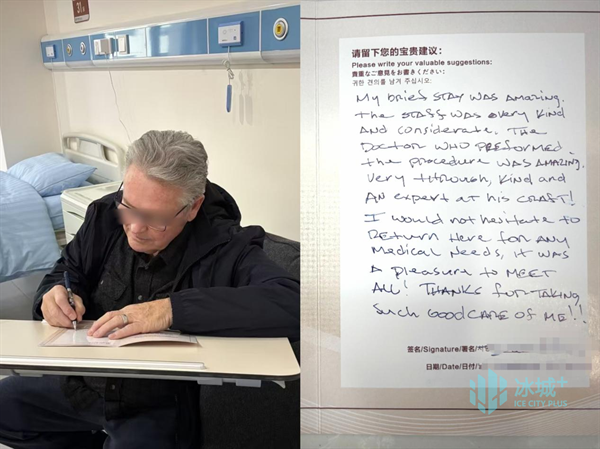 31
请留下您的宝贵建议：
Please write your valuable suggestions:
貴重なご意見をお書きください：
귀한 건의를 남겨 주십시오:
My brief STAY WAS AMAZING.
The STAFF WAS every KIND
AND considerate. The
Doctor WHO PREFORMED
the procedure WAS AMAZING.
Very through, KIND and
AN expert AT his CRAFT!
I would not hesitate to
Return Here for ANY
Medical Needs, IT WAS
A pleasure to MEET
ALL! THANKS for TAKING
Such GOOD CARE OF ME!!
签名/Signature/署名/
日期/Date/日付/
冰城+
ICE CITY PLUS